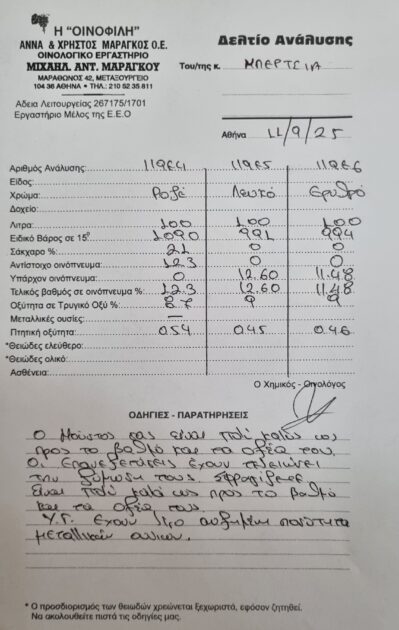 Η "ΟΙΝΟΦΙΛΗ"
ΑΝΝΑ & ΧΡΗΣΤΟΣ ΜΑΡΑΓΚΟΣ Ο.Ε.
ΟΙΝΟΛΟΓΙΚΟ ΕΡΓΑΣΤΗΡΙΟ
ΜΙΧΑΗΛ. ΑΝΤ. ΜΑΡΑΓΚΟΥ
ΜΑΡΑΘΩΝΟΣ 42, ΜΕΤΑΞΟΥΡΓΕΙΟ
104 36 ΑΘΗΝΑ • ΤΗΛ.: 210 52 35 811
Αδεια Λειτουργείας 267175/1701
Εργαστήριο Μέλος της Ε.Ε.Ο
Δελτίο Ανάλυσης
Του/της κ. ΜΠΕΡΤΣΙΑ
Αθήνα 11/9/25
Αριθμός Ανάλυσης: 11964 11965 11966
Είδος:
Χρώμα: Ροζέ Λευκό Ερυθρό
Δοχείο:
Λίτρα: 100 100 100
Ειδικό Βάρος σε 15° 1090 991 994
Σάκχαρο %: 21 0 0
Αντίστοιχο οινόπνευμα: 12.3 0 0
Υπάρχον οινόπνευμα: 0 12.60 11.48
Τελικός βαθμός σε οινόπνευμα %: 12.3 12.60 11.48
Οξύτητα σε Τρυγικό Οξύ %: 8.7 9 9
Μεταλλικές ουσίες: —
Πτητική οξύτητα: 054 045 046
*Θειώδες ελεύθερο:
*Θειώδες ολικό:
Ασθένεια:
Ο Χημικός - Οινολόγος
ΟΔΗΓΙΕΣ - ΠΑΡΑΤΗΡΗΣΕΙΣ
Ο Μούστος σας είναι πολύ καλός ως
προς το βαθμό και τα οξέα του.
Οι έχουν τελειώσει
την ζύμωση τους.
Είναι πολύ καλά ως προς το βαθμό
και τα οξέα τους
Υ.Γ. έχουν λίγο αυξημένη ποσότητα
μεταλλικών ουσιών.
* Ο προσδιορισμός των θειωδών χρεώνεται ξεχωριστά, εφόσον ζητηθεί.
Να ακολουθείτε πιστά τις οδηγίες μας.